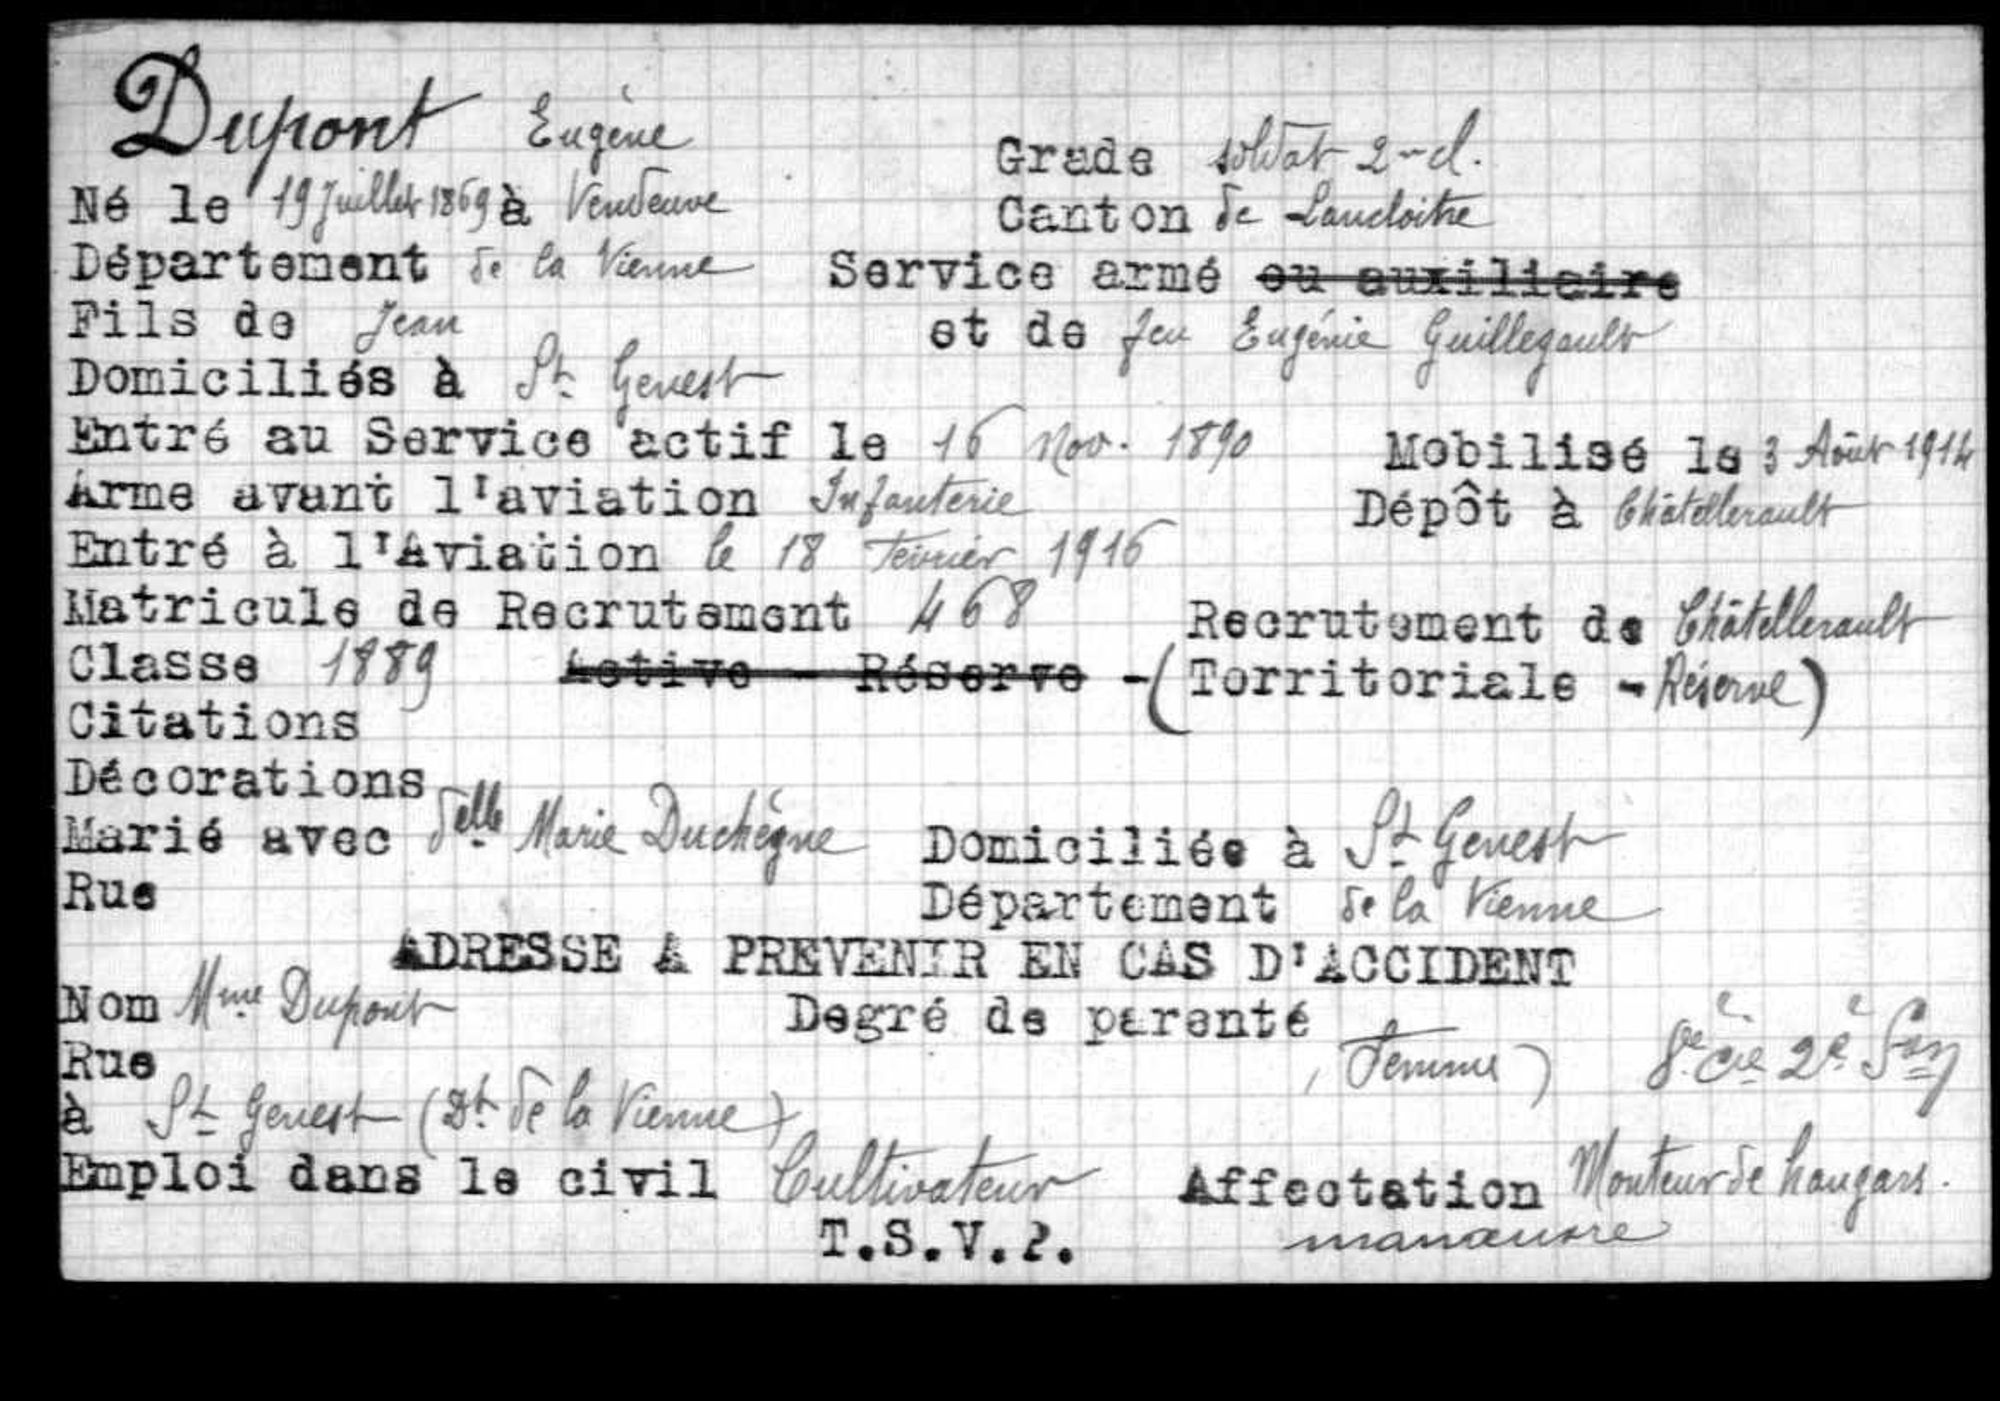 Dupont Eugène
Grade soldat 2me cl.
Né le 19 Juillet 1869 à Vendeuve
Canton de Lancloitre
Département de la Vienne Service armé ou auxiliaire
Fils de Jean et de feu Eugénie Guillegault
Domiciliés à St Genest
Entré au Service actif le 16 Nov. 1890 Mobilisé le 3 Août 1914
Arme avant l'aviation Infanterie Dépôt à Châtellerault
Entré à l'Aviation le 18 Février 1916
Matricule de Recrutement 468 Recrutement de Châtellerault
Classe 1889 Active - Réserve - (Territoriale - Réserve)
Citations
Décorations
Marié avec delle Marie Duchêgne Domiciliée à St Genest
Rue Département de la Vienne
ADRESSE A PREVENIR EN CAS D'ACCIDENT
Nom Mme Dupont Degré de parenté
Rue (Femme) 8e Cie 2e Son
à St Genest (Dt de la Vienne)
Emploi dans le civil Cultivateur Affectation Monteur de hangars.
T.S.V.P. manœuvre